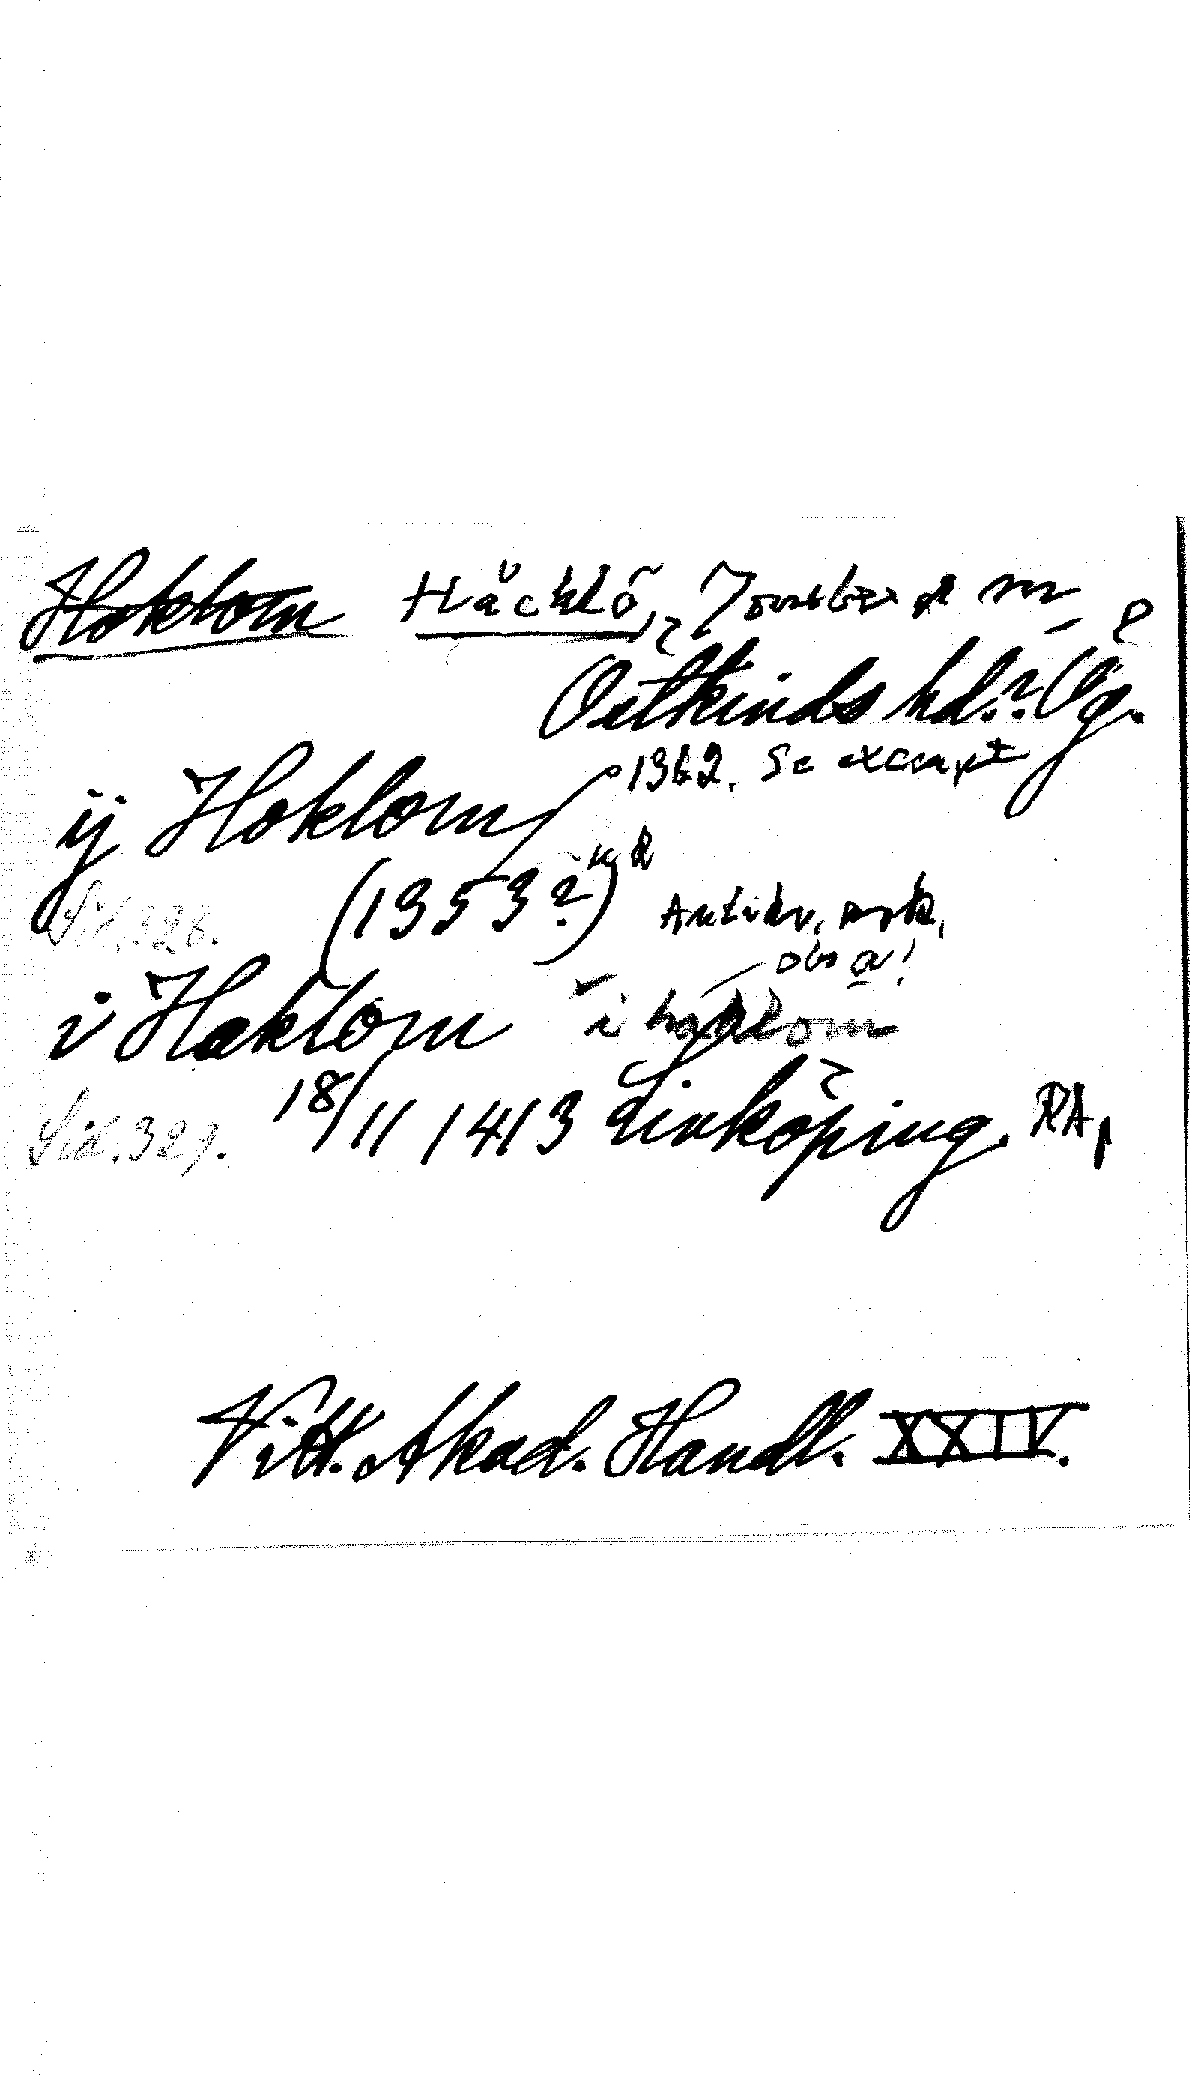 Hoklom Håcklö,
Östkinds hd.? Ög.
ij Hoklom 1362. Se excerpt
Sid. 328. (1353?) Antikv. ark.
obs a!
i Haklom i haklom
Sid. 329. 18/11 1413 Linköping. RAp
Vitt. Akad. Handl. XXIV.